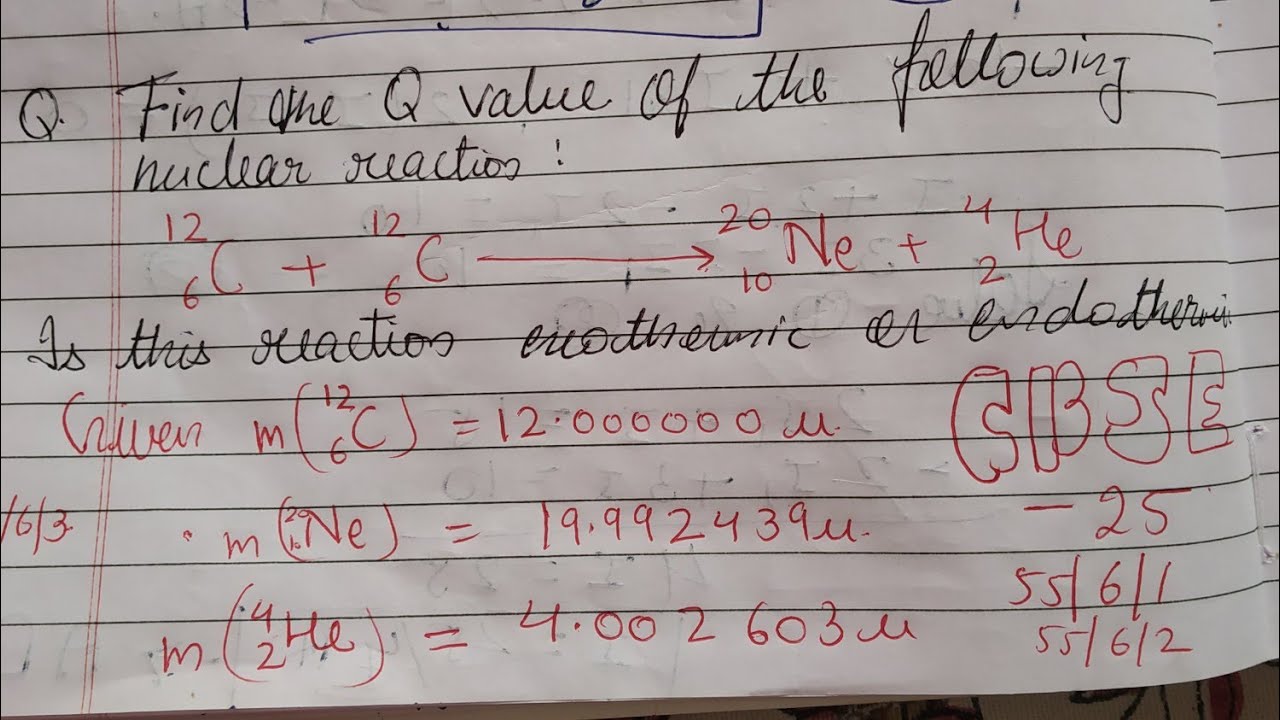 Q. Find the Q value of the following
nuclear reaction :
¹²₆C + ¹²₆C ⟶ ²⁰₁₀Ne + ⁴₂He
Is this reaction exothermic or endothermic
Given m(¹²₆C) = 12.000000 u.
CBSE
m(²⁰₁₀Ne) = 19.992439u.
- 25
/6/3
55/6/1
m(⁴₂He) = 4.002603u
55/6/2